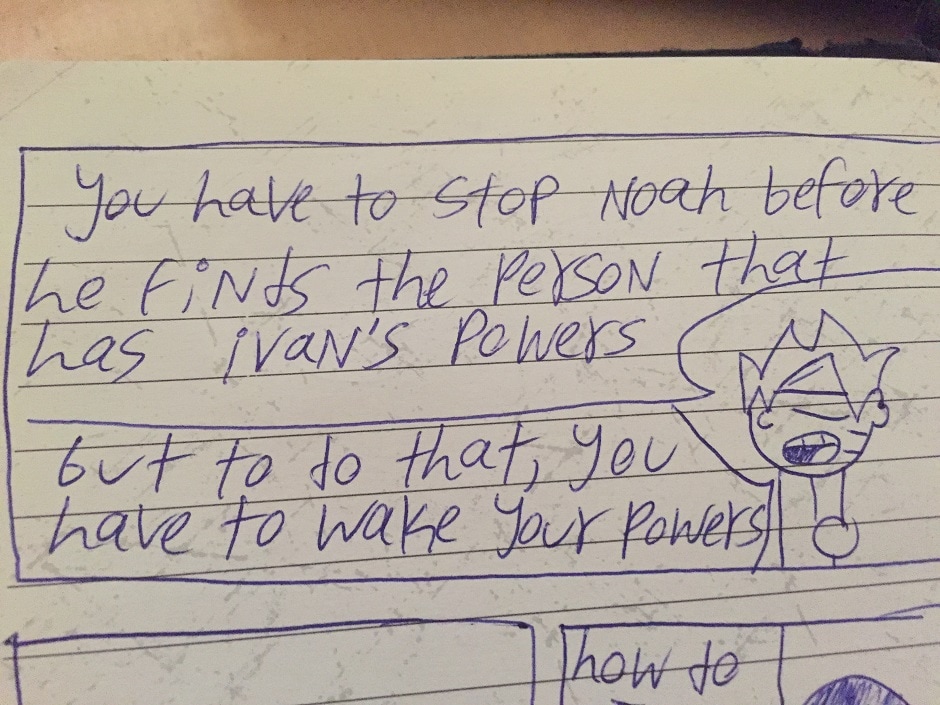 You have to stop Noah before
he finds the person that
has ivan's powers
but to do that, you
have to wake your powers
how to